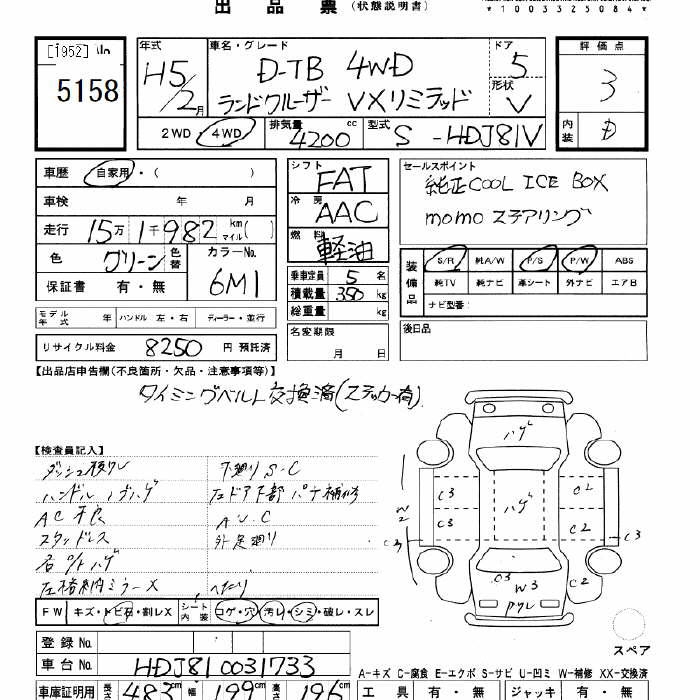 出品票(状態説明書)
*1003325084*
[1952] No
5158
年式 H5/2月
車名・グレード D-TB 4WD
ランドクルーザー VXリミテッド
ドア 5
形状 V
2WD 4WD 排気量 4200 cc 型式 S-HDJ81V
評価点 3
内装 D
車歴 自家用・( )
車検 年 月
走行 15万1千982 km マイル( )
色 グリーン 色替 カラーNo. 6M1
保証書 有・無
シフト FAT
冷房 AAC
燃料 軽油
乗車定員 5 名
積載量 350 kg
総重量 kg
名変期限 月 日
セールスポイント
純正COOL ICE BOX
momoステアリング
装備品 S/R 純A/W P/S P/W ABS
純TV 純ナビ 革シート 外ナビ エアB
ナビ型番:
後日品
モデル年式 年 ハンドル 左・右 ディーラー・並行
リサイクル料金 8250 円 預託済
【出品店申告欄(不良箇所・欠品・注意事項等)】
タイミングベルト交換済(ステッカー有)
【検査員記入】
下廻りS-C
AC不良
スタッドレス
左格納ミラーX
へたり
ハゲ
ハゲ
C3
C3
C3
C2
C2
C3
W2
C3
W3
C2
FW キズ・トビ石・割レX シート内装 コゲ・穴・汚レ・シミ・破レ・スレ
スペア
登録No.
車台No. HDJ81 0031733
A-キズ C-腐食 E-エクボ S-サビ U-凹ミ W-補修 XX-交換済
車庫証明用 長さ 483 幅 199 高さ 196 工具 有・無 ジャッキ 有・無